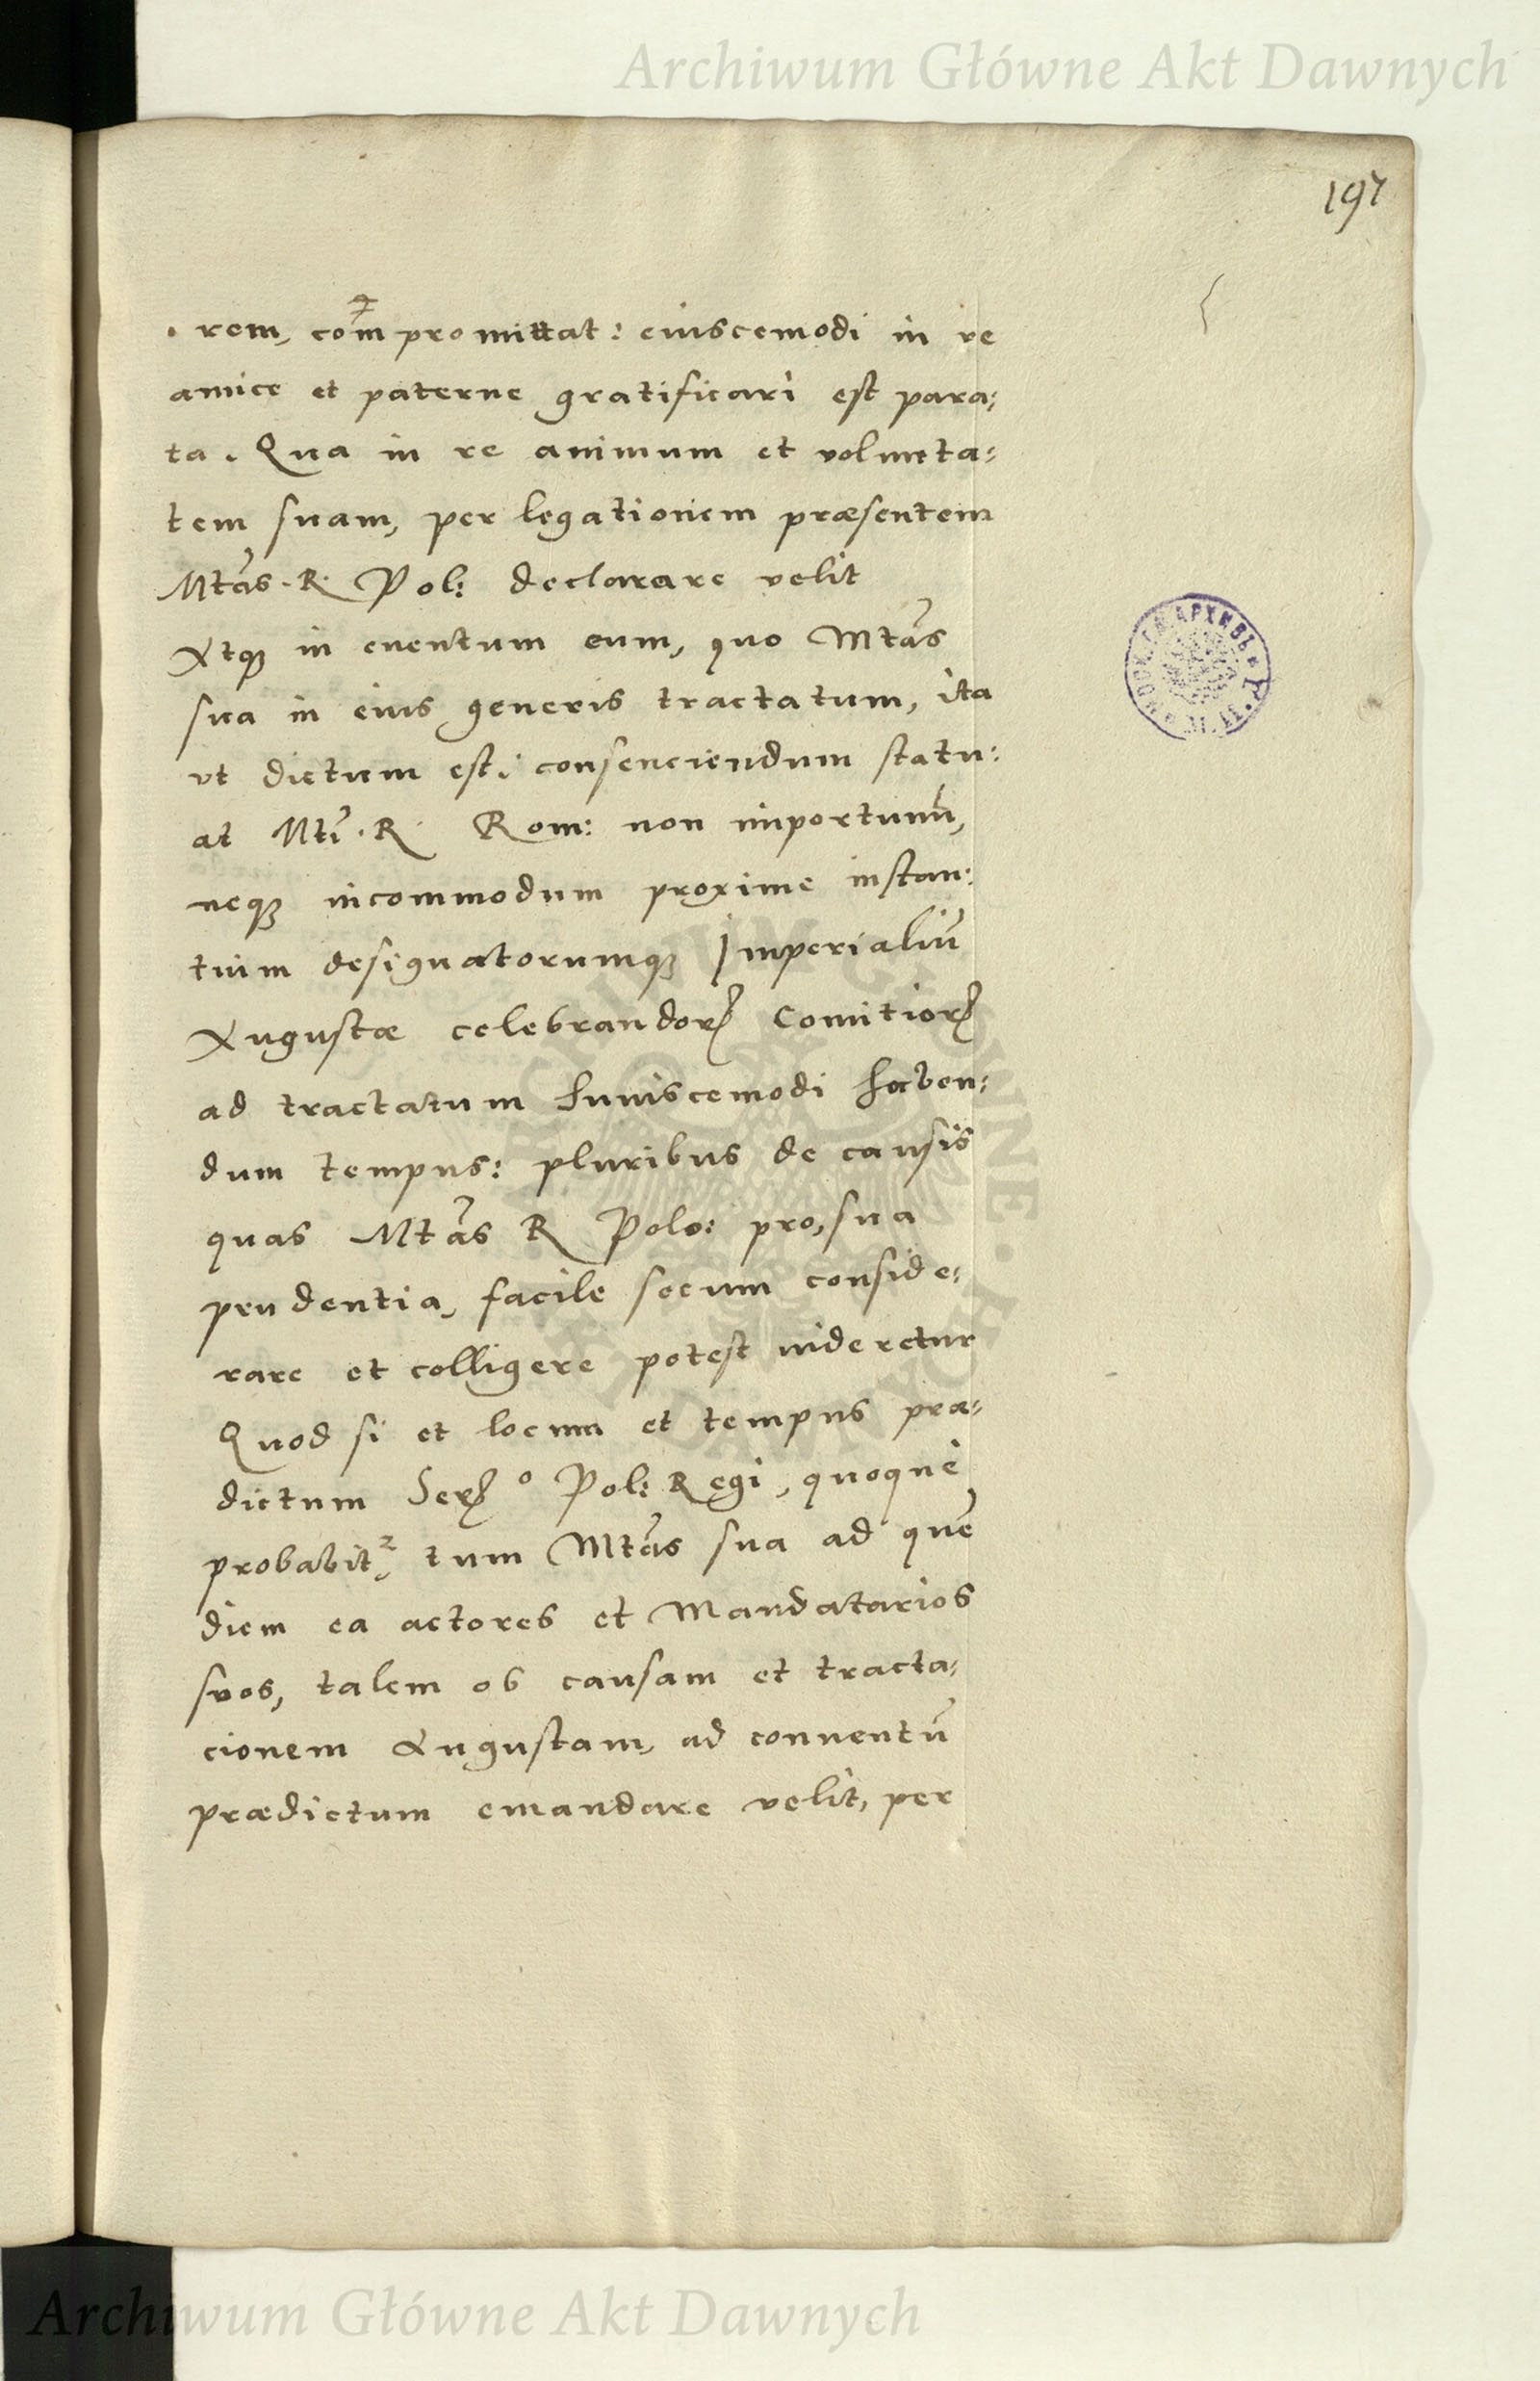 Archiwum Główne Akt Dawnych
197
rem, compromittat: eiuscemodi in re
amice et paterne gratificari est para:
ta. Qua in re animum et volunta:
tem suam, per legationem præsentem
Mtas. R. Pol: declarare velit
Atqꝫ in euentum eum, quo Mtas
sua in eius generis tractatum, ita
vt dictum est, consenciendum statu:
at Mti. R. Rom: non importunū,
neqꝫ incommodum proxime instan:
tium designatorumqꝫ Imperialiū
Augustæ celebrandorꝝ Comitiorꝝ
ad tractatum huiuscemodi haben:
dum tempus: pluribus de causis
quas Mtas R Polo: pro, sua
prudentia, facile secum conside:
rare et colligere potest uideretur
Quod si et locum et tempus præ:
dictum Serꝫ º Pol: Regi, quoque
probabitᷣ, tum Mtas sua ad quē
diem ea actores et Mandatarios
suos, talem ob causam et tracta:
cionem Augustam, ad conuentū
prædictum emandare velit, per
Archiwum Główne Akt Dawnych